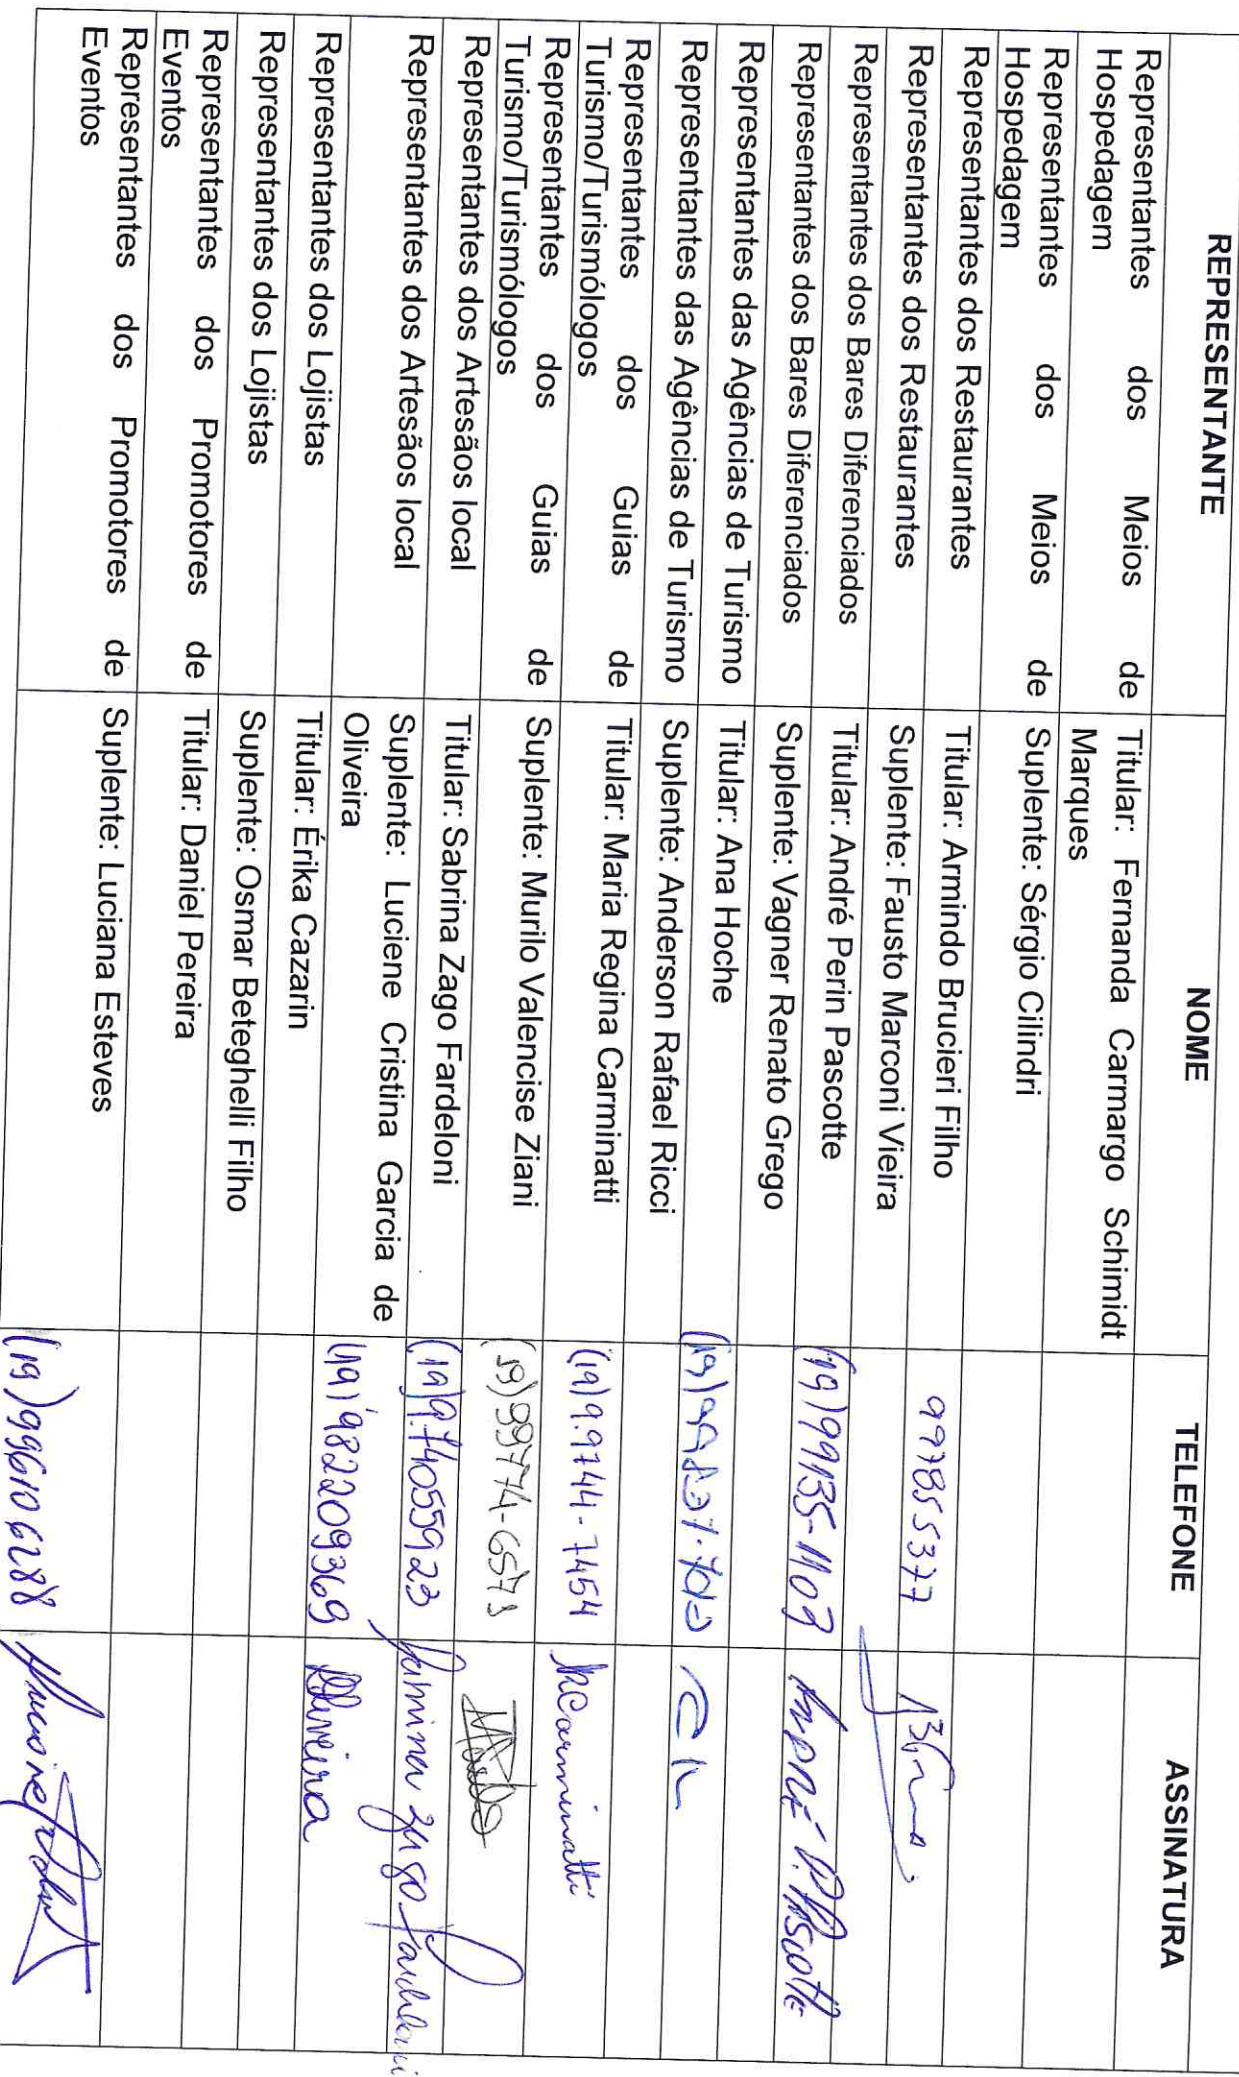 REPRESENTANTE NOME TELEFONE ASSINATURA
Representantes dos Meios de Titular: Fernanda Carmargo Schimidt
Hospedagem Marques
Representantes dos Meios de Suplente: Sérgio Cilindri
Hospedagem
Representantes dos Restaurantes Titular: Armindo Brucieri Filho 997855377
Representantes dos Restaurantes Suplente: Fausto Marconi Vieira
Representantes dos Bares Diferenciados Titular: André Perin Pascotte (19)99135-1103 André P. Pascotte
Representantes dos Bares Diferenciados Suplente: Vagner Renato Grego
Representantes das Agências de Turismo Titular: Ana Hoche (19)
Representantes das Agências de Turismo Suplente: Anderson Rafael Ricci
Representantes dos Guias de Titular: Maria Regina Carminatti (19)9.9744-7454 MCarminatti
Turismo/Turismólogos
Representantes dos Guias de Suplente: Murilo Valencise Ziani (19)99774-6573
Turismo/Turismólogos
Representantes dos Artesãos local Titular: Sabrina Zago Fardeloni (19)9.74055923
Representantes dos Artesãos local Suplente: Luciene Cristina Garcia de (19)982209369 Oliveira
Oliveira
Representantes dos Lojistas Titular: Érika Cazarin
Representantes dos Lojistas Suplente: Osmar Beteghelli Filho
Representantes dos Promotores de Titular: Daniel Pereira
Eventos
Representantes dos Promotores de Suplente: Luciana Esteves (19)996106288
Eventos